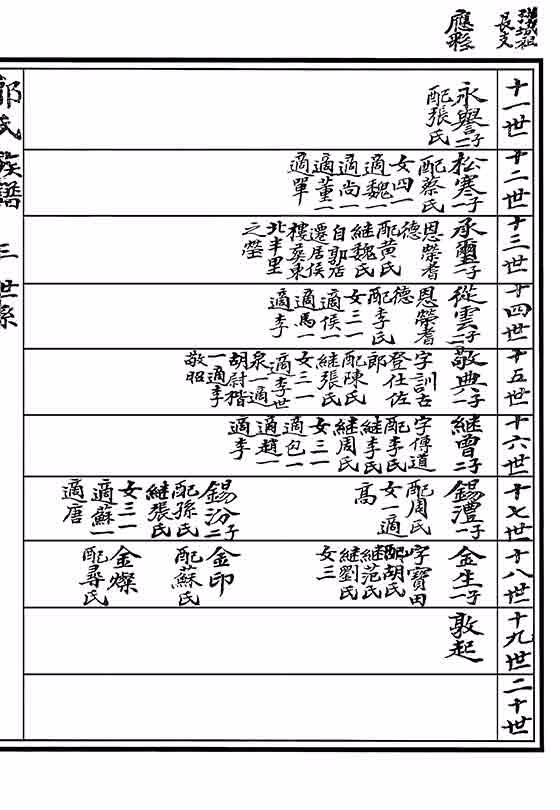 城祖
長支
應彩
十一世
永譽
一子
配張氏
十二世
松寒
一子
配蔡氏
女四一
適魏一
適尚一
適董一
適單
十三世
承璽
一子
恩榮耆
德
配黃氏
継魏氏
自郭店
遷居侯
樓莫東
北半里
之塋
十四世
從雲
二子
恩榮耆
德
配李氏
女三一
適侯一
適馬一
適李
十五世
敬典
一子
字訓古
登仕佐
郎
配陳氏
継張氏
女三一
適李世
泉一適
胡尉楷
一適李
敬昭
十六世
継曾
二子
字傳道
配李氏
継李氏
継周氏
女三一
適包一
適趙一
適李
十七世
錫澧
一子
配周氏
女一適
高
錫汾
二子
配孫氏
継張氏
女三一
適蘇一
適唐
十八世
金生
一子
字寶田
配胡氏
継范氏
継劉氏
女三
金印
配蘇氏
金燦
配尋氏
十九世
敦起
二十世
郭氏族譜
三
世系